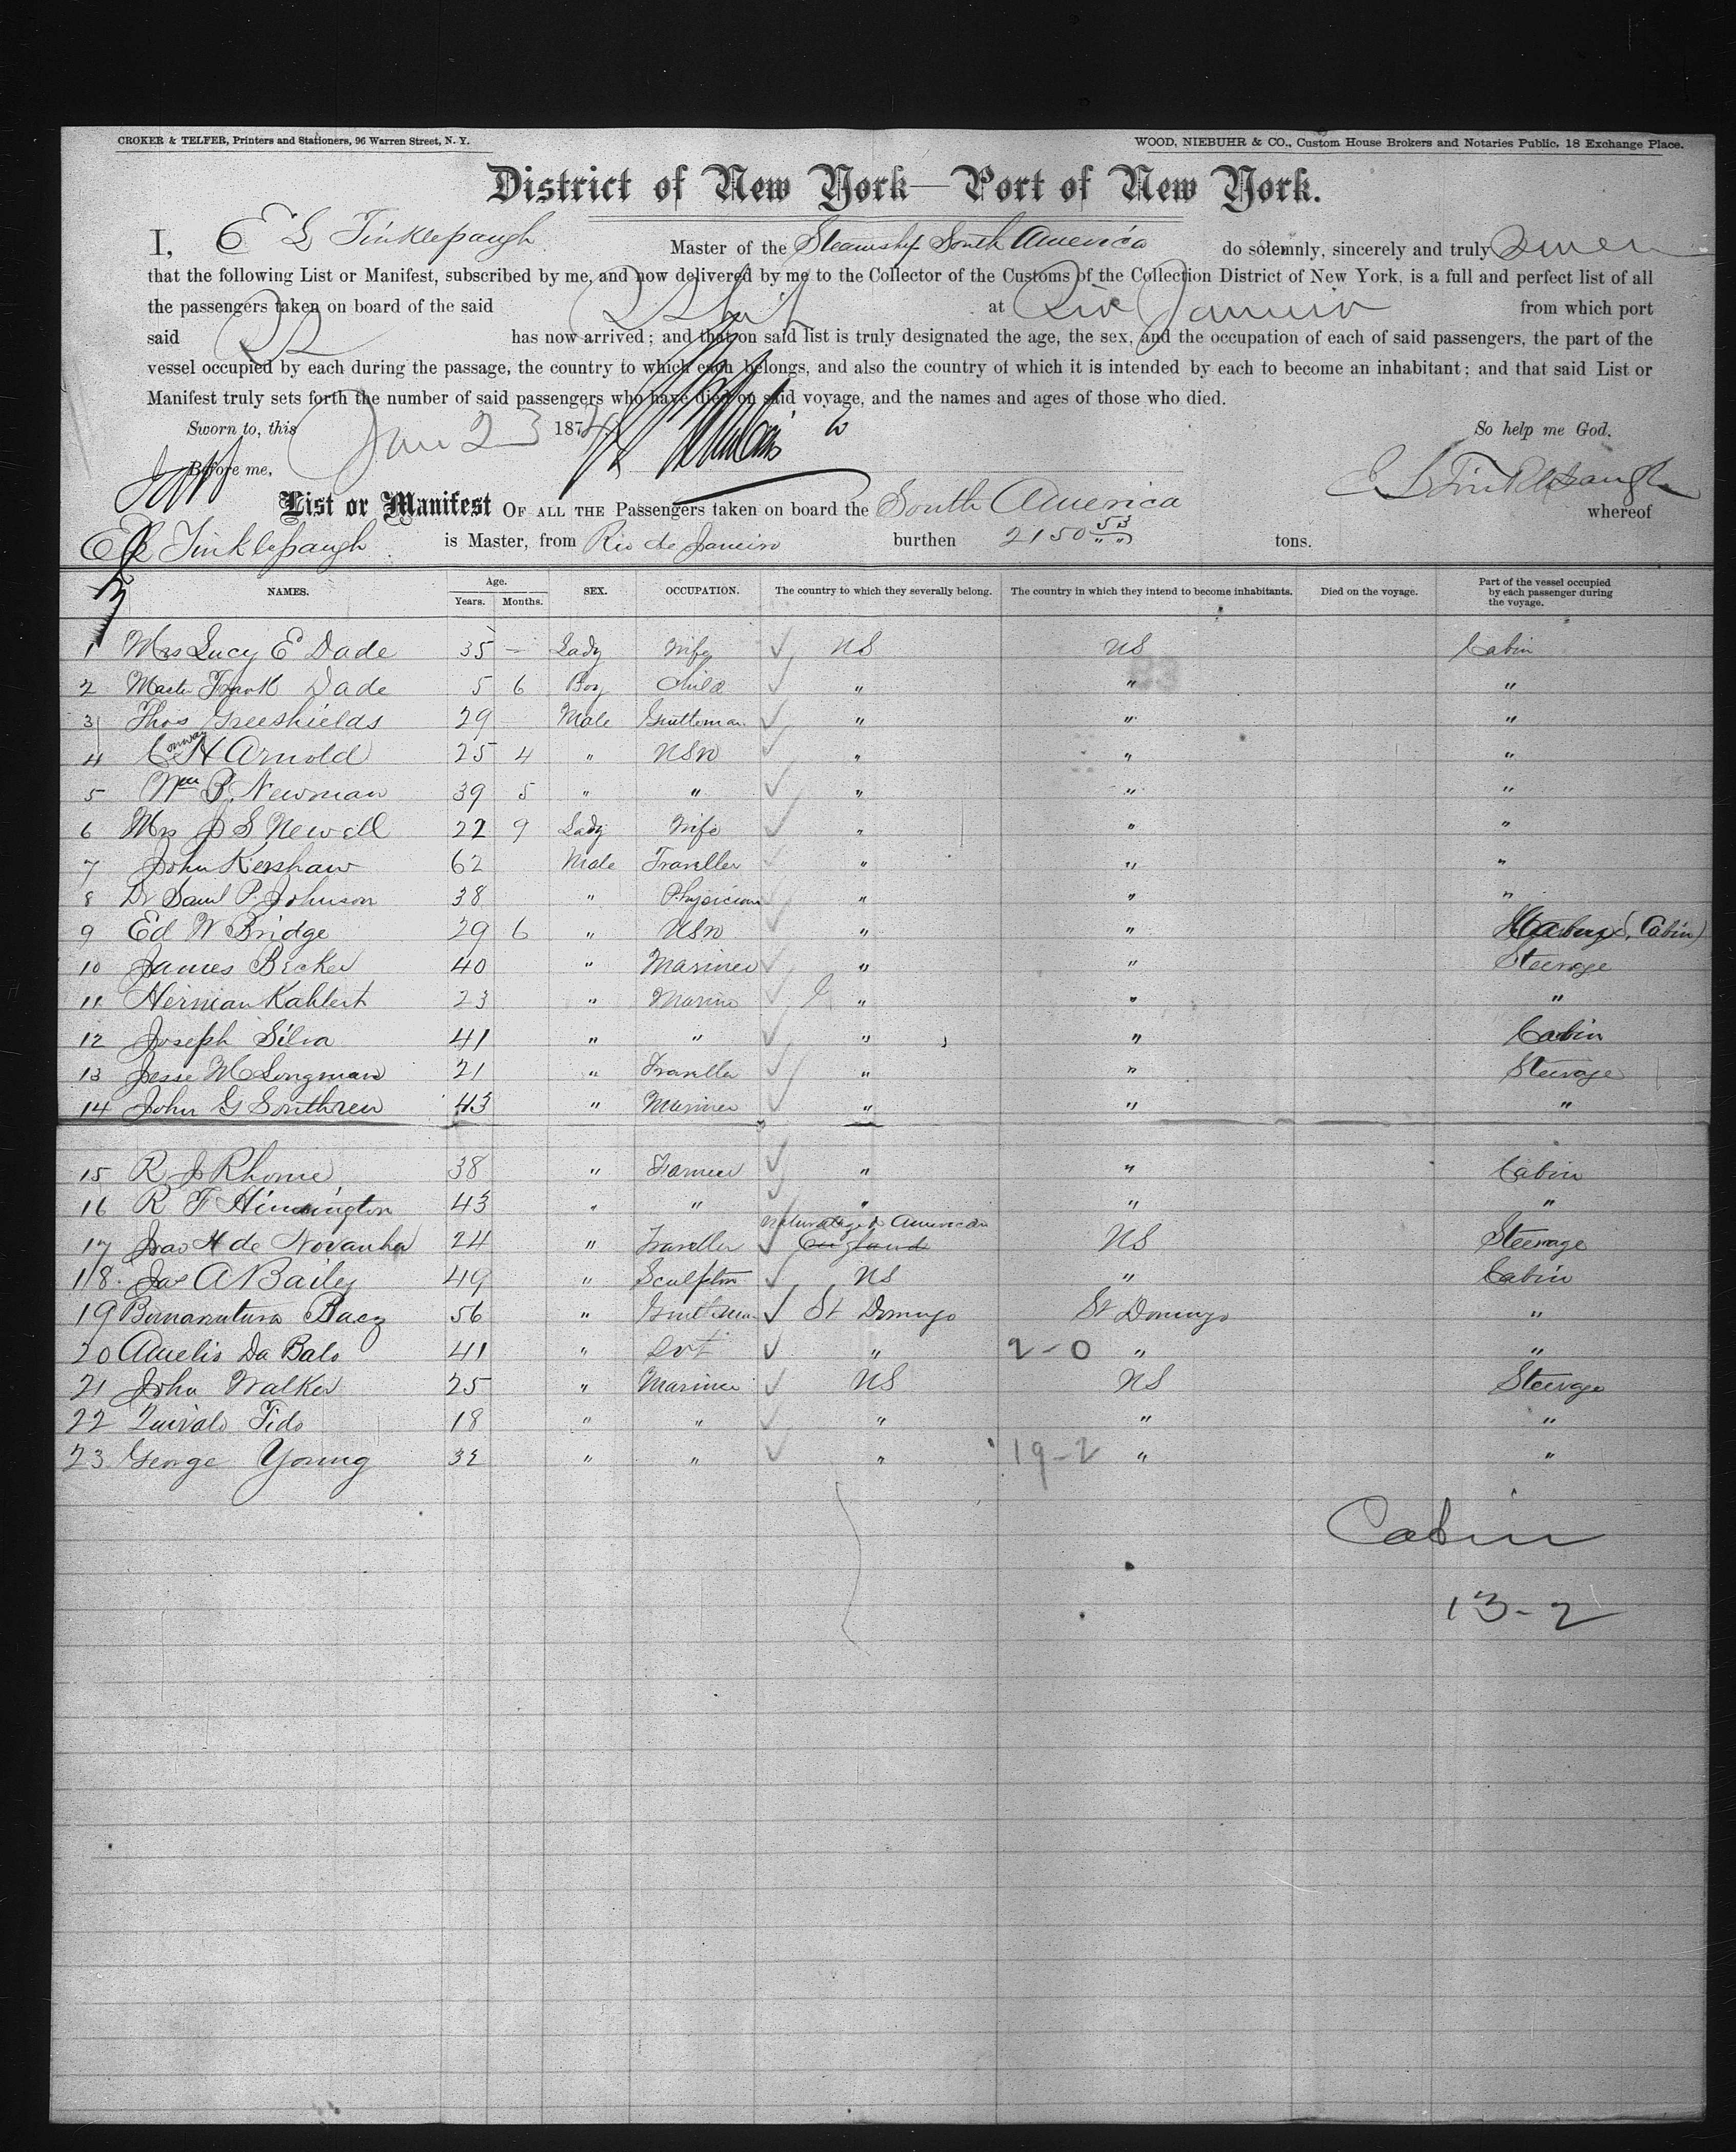 CROKER & TELFER, Printers and Stationers, 96 Warren Street, N. Y. WOOD, NIEBUHR & CO., Custom House Brokers and Notaries Public, 18 Exchange Place.
District of New York—Port of New York.
I, E L Tinklepaugh Master of the Steamship South America do solemnly, sincerely and truly swear
that the following List or Manifest, subscribed by me, and now delivered by me to the Collector of the Customs of the Collection District of New York, is a full and perfect list of all
the passengers taken on board of the said SShip at Rio Janeiro from which port
said SS has now arrived; and that on said list is truly designated the age, the sex, and the occupation of each of said passengers, the part of the
vessel occupied by each during the passage, the country to which each belongs, and also the country of which it is intended by each to become an inhabitant; and that said List or
Manifest truly sets forth the number of said passengers who have died on said voyage, and the names and ages of those who died.
Sworn to, this Jan 23 187 So help me God.
Before me, E L Tinklepaugh
List or Manifest OF ALL THE Passengers taken on board the South America whereof
E L Tinklepaugh is Master, from Rio de Janeiro burthen 2150 53 tons.
NAMES. Age. Years. Months. SEX. OCCUPATION. The country to which they severally belong. The country in which they intend to become inhabitants. Died on the voyage. Part of the vessel occupied by each passenger during the voyage.
1 Mrs Lucy E Dade 35 — Lady Wife US US Cabin
2 Master Frank Dade 5 6 Boy Child " " "
3 Thos Greeshields 29 Male Gentleman " " "
4 Conway H Arnold 25 4 " USN " " "
5 Wm B. Newman 39 5 " " " " "
6 Mrs J S Newell 22 9 Lady Wife " " "
7 John Kershaw 62 Male Traveller " " "
8 Dr Saml P. Johnson 38 " Physician " " "
9 Ed W Bridge 29 6 " USN " " Cabin)
10 James Becker 40 " Mariner " " Steerage
11 Herman Kahlert 23 " Marine " " "
12 Joseph Silva 41 " " " " Cabin
13 Jesse M Longman 21 " Traveller " " Steerage
14 John G Southren 43 " Mariner " " "
15 R J Rhome 38 " Farmer " " Cabin
16 R F 43 " " " " "
17 H de Novanha 24 " Traveller naturalized American England US Steerage
18 Jas A Baily 49 " Sculptor US " Cabin
19 Baez 56 " Gentleman St Domingo St Domingo "
20 Da Balo 41 " Svt " 2-0 " "
21 John Walker 25 " Mariner US US Steerage
22 Fido 18 " " " " "
23 George Young 32 " " " 19-2 " "
Cabin
13-2